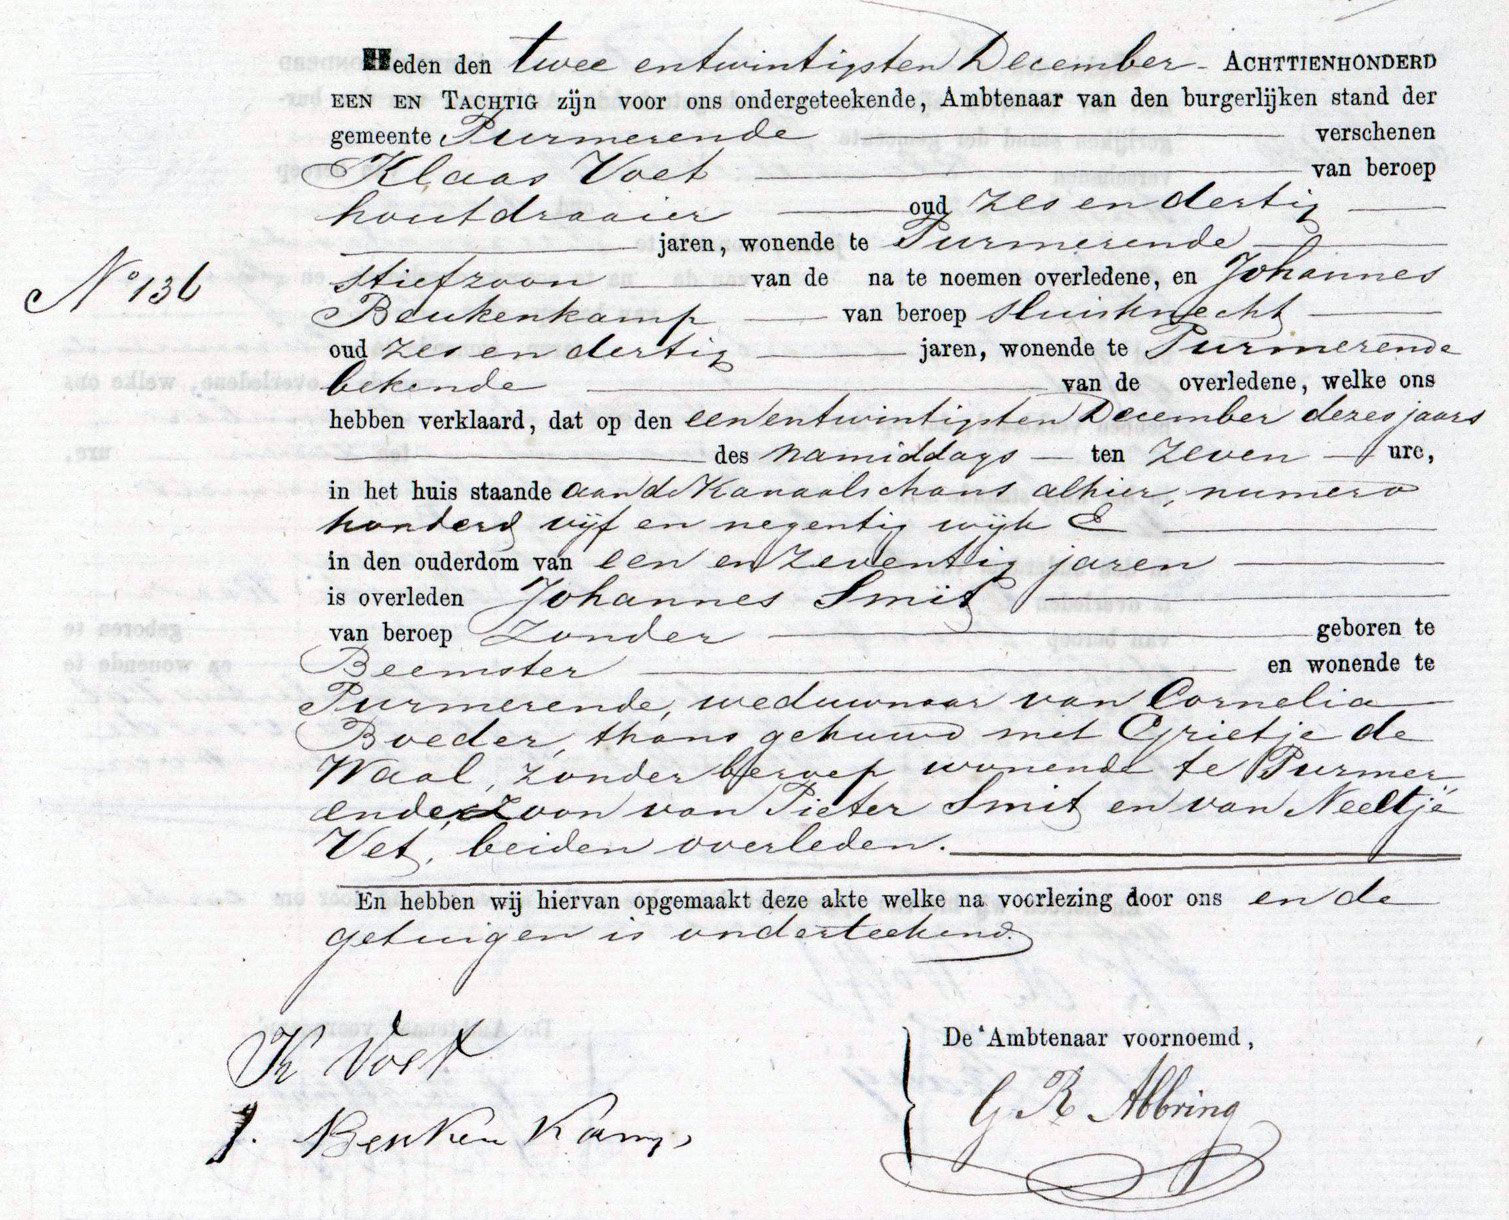 Heden den twee entwintigsten December - ACHTTIENHONDERD
EEN EN TACHTIG zijn voor ons ondergeteekende, Ambtenaar van den burgerlijken stand der
gemeente Purmerende verschenen
Klaas Voet van beroep
houtdraaier oud zes en dertig
jaren, wonende te Purmerende
N° 136
stiefzoon van de na te noemen overledene, en Johannes
Beukenkamp van beroep sluisknecht
oud zes en dertig jaren, wonende te Purmerende
bekende van de overledene, welke ons
hebben verklaard, dat op den een entwintigsten December dezes jaars
des namiddags ten zeven ure,
in het huis staande aan de Kanaalschans alhier, numero
honderd vijf en negentig wijk E
in den ouderdom van een en zeventig jaren
is overleden Johannes Smit
van beroep zonder geboren te
Beemster en wonende te
Purmerende, weduwnaar van Cornelia
Boeder, thans gehuwd met Grietje de
Waal, zonder beroep wonende te Purmer
ende, zoon van Pieter Smit en van Neeltje
Vet, beiden overleden.
En hebben wij hiervan opgemaakt deze akte welke na voorlezing door ons en de
getuigen is onderteekend.
De Ambtenaar voornoemd,
K Voet
G R Abbring
J. Beuken Kamp